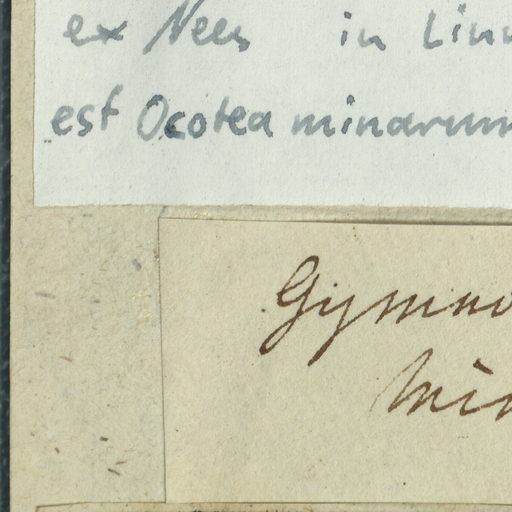 ex Nees in Linn
est Ocotea minarum
Gymno
Min